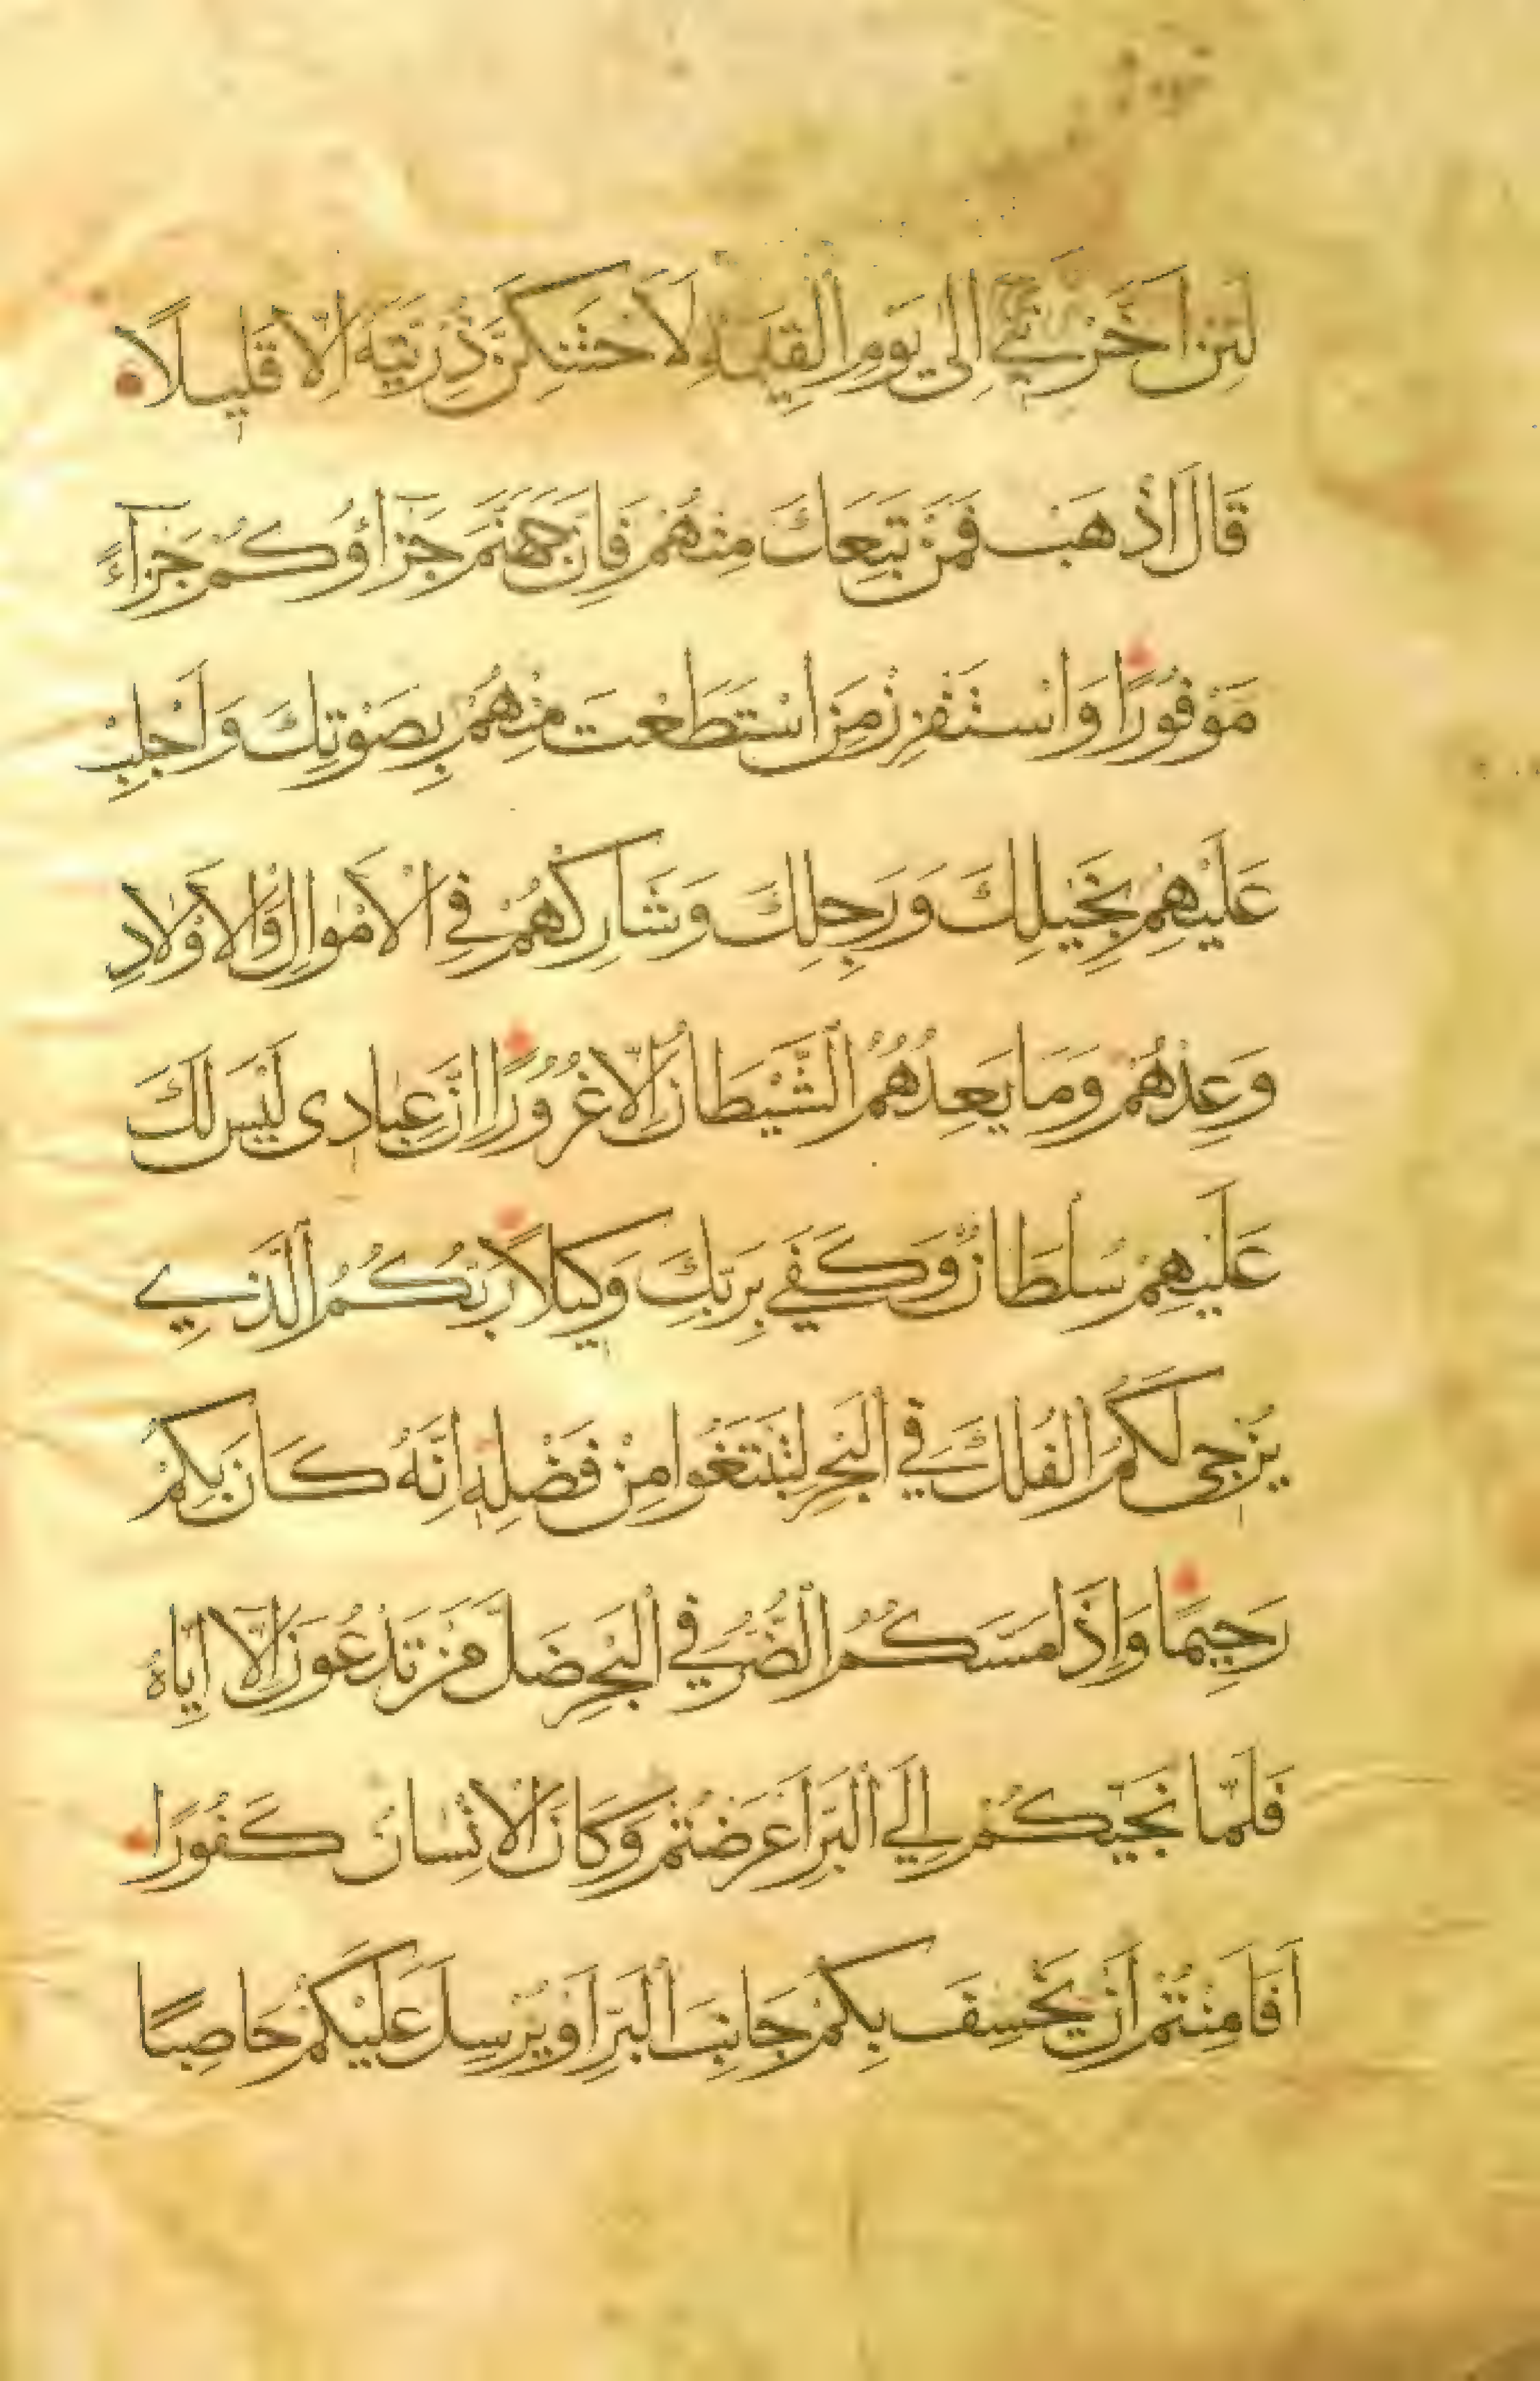 لَئِنْ اَخَّرْتَنِي اِلٰى يَوْمِ الْقِيٰمَةِ لَاَحْتَنِكَنَّ ذُرِّيَّتَهُ اِلَّا قَلِيلًا
قَالَ اذْهَبْ فَمَنْ تَبِعَكَ مِنْهُمْ فَاِنَّ جَهَنَّمَ جَزَاؤُكُمْ جَزَآءً
مَوْفُورًا وَاسْتَفْزِزْ مَنِ اسْتَطَعْتَ مِنْهُمْ بِصَوْتِكَ وَاَجْلِبْ
عَلَيْهِمْ بِخَيْلِكَ وَرَجِلِكَ وَشَارِكْهُمْ فِي الْاَمْوَالِ وَالْاَوْلَادِ
وَعِدْهُمْ وَمَا يَعِدُهُمُ الشَّيْطَانُ اِلَّا غُرُورًا اِنَّ عِبَادِى لَيْسَ لَكَ
عَلَيْهِمْ سُلْطَانٌ وَكَفٰي بِرَبِّكَ وَكِيلًا رَبُّكُمُ الَّذِي
يُزْجِى لَكُمُ الْفُلْكَ فِي الْبَحْرِ لِتَبْتَغُوا مِنْ فَضْلِهِ اِنَّهُ كَانَ بِكُمْ
رَحِيمًا وَاِذَا مَسَّكُمُ الضُّرُّ فِي الْبَحْرِ ضَلَّ مَنْ تَدْعُونَ اِلَّا اِيَّاهُ
فَلَمَّا نَجّٰيكُمْ اِلَي الْبَرِّ اَعْرَضْتُمْ وَكَانَ الْاِنْسَانُ كَفُورًا
اَفَاَمِنْتُمْ اَنْ يَخْسِفَ بِكُمْ جَانِبَ الْبَرِّ اَوْ يُرْسِلَ عَلَيْكُمْ حَاصِبًا